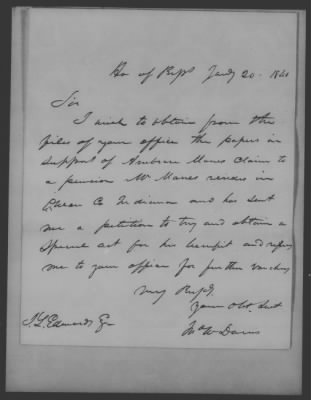 Ho of Reps Jany 20. 1841
Sir
I wish to obtain from the
files of your office the papers in
support of Ambrose Manes claim to
a pension Mr Manes resides in
Owen Co Indiana and has sent
me a petition to try and obtain a
Special act for his benefit and refers
me to your office for further vouchers
Very Respy.
your Obt. Svt
Jno W Davis
J. L. Edwards Eq